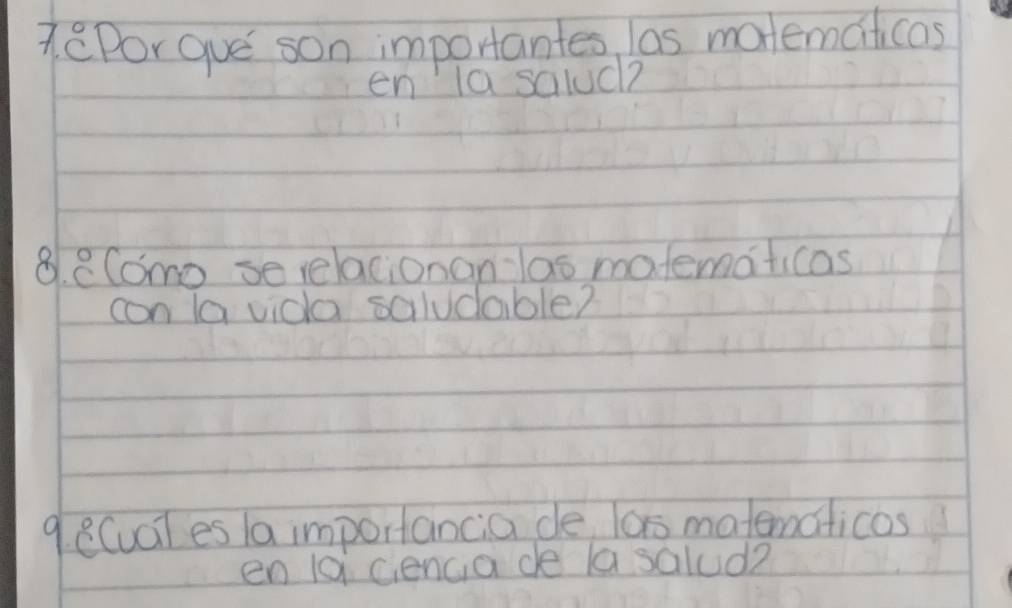 7. ¿Por qué son importantes las matemáticas
en la salud?
8. ¿Cómo se relacionan las matemáticas
con la vida saludable?
9. ¿Cuál es la importancia de las matemáticas
en la ciencia de la salud?